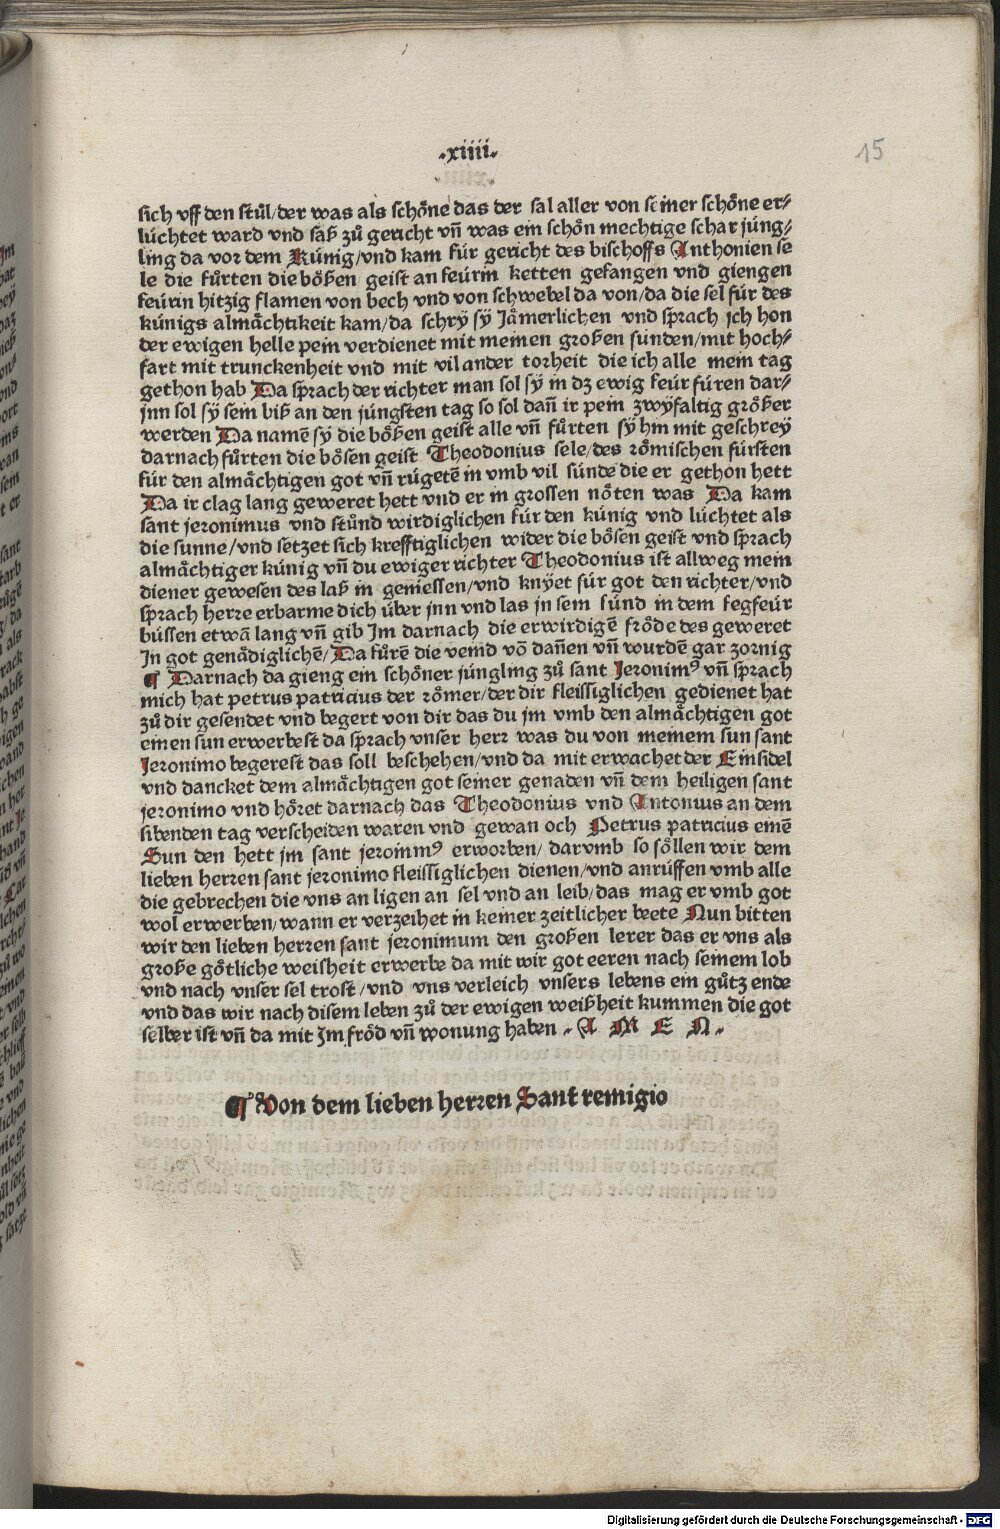 .xiiii.
15
sich vff den stůl/der was als schöne das der sal aller von seiner schöne er/
lüchtet ward vnd saß zů gericht vñ was ein schön mechtige schar jüng/
ling da vor dem Künig/vnd kam für gericht des bischoffs Anthonien se
le die fůrten die bößen geist an feürin ketten gefangen vnd giengen
feürin hitzig flamen von bech vnd von schwebel da von/da die sel für des
künigs almächtikeit kam/da schrÿ sÿ Jämerlichen vnd sprach jch hon
der ewigen helle pein verdienet mit meinen großen sünden/mit hoch/
fart mit trunckenheit vnd mit vil ander torheit die ich alle mein tag
gethon hab Da sprach der richter man sol sÿ in dz ewig feür füren dar/
jnn sol sÿ sein biß an den jüngsten tag so sol dañ ir pein zwÿfaltig größer
werden Da namē sÿ die bößen geist alle vñ fůrten sÿ hin mit geschreÿ
darnach fůrten die bösen geist Theodonius sele/des römischen fürsten
für den almächtigen got vñ rügetē in vmb vil sünde die er gethon hett
Da ir clag lang geweret hett vnd er in grossen nöten was Da kam
sant jeronimus vnd stůnd wirdiglichen für den künig vnd lüchtet als
die sunne/vnd setzet sich krefftiglichen wider die bösen geist vnd sprach
almächtiger künig vñ du ewiger richter Theodonius ist allweg mein
diener gewesen des laß in geniessen/vnd knÿet für got den richter/vnd
sprach herre erbarme dich über jnn vnd las jn sein sünd in dem fegfeür
büssen etwā lang vñ gib Im darnach die erwirdigē fröde des geweret
In got genädiglichē/Da fůrē die veind vō dañen vñ wurdē gar zornig
¶ Darnach da gieng ein schöner jüngling zů sant Jeronimꝰ vñ sprach
mich hat petrus patricius der römer/der dir fleissiglichen gedienet hat
zů dir gesendet vnd begert von dir das du jm vmb den almächtigen got
einen sun erwerbest da sprach vnser herr was du von meinem sun sant
Jeronimo begerest das soll beschehen/vnd da mit erwachet der Einsidel
vnd dancket dem almächtigen got seiner genaden vñ dem heiligen sant
jeronimo vnd höret darnach das Theodonius vnd Antonius an dem
sibenden tag verscheiden waren vnd gewan och Petrus patricius einē
Sun den hett jm sant jeronimꝰ erworben/darvmb so söllen wir dem
lieben herren sant jeronimo fleissiglichen dienen/vnd anrüffen vmb alle
die gebrechen die vns an ligen an sel vnd an leib/das mag er vmb got
wol erwerben/wann er verzeihet in keiner zeitlicher beete Nun bitten
wir den lieben herren sant jeronimum den großen lerer das er vns als
große götliche weisheit erwerbe da mit wir got eeren nach seinem lob
vnd nach vnser sel trost/vnd vns verleich vnsers lebens ein gůtz ende
vnd das wir nach disem leben zů der ewigen weißheit kummen die got
selber ist vñ da mit Im fröd vñ wonung haben . A M E N .
¶ Von dem lieben herren Sant remigio
Digitalisierung gefördert durch die Deutsche Forschungsgemeinschaft - DFG